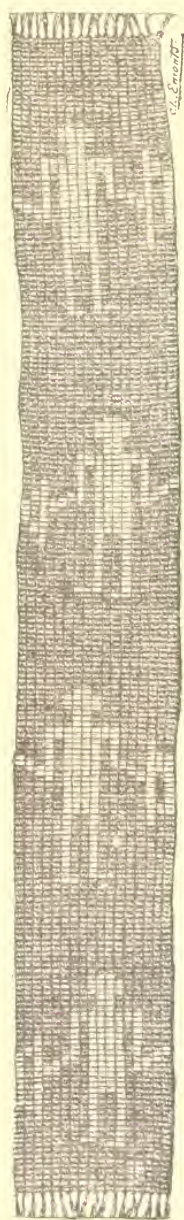 Cl. Emonts